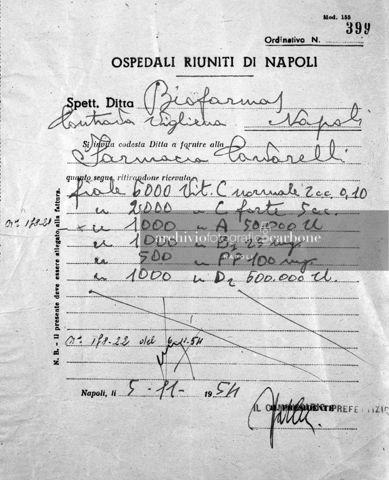 Mod. 155
399
Ordinativo N.
OSPEDALI RIUNITI DI NAPOLI
Spett. Ditta Biofarma
Contrada Vigliena Napoli
Si invita codesta Ditta a fornire alla
Farmacia Cantarelli
quanto segue, ritirandone ricevuta:
fiale 6000 Vit. C normale 2 cc. 0,10
" 2000 " C forte 5 cc.
" 1000 " A 50.000 U.
" 1000 " B1 25 mg.
" 500 " 100 mg.
" 1000 " D2 600.000 U.
archiviofotograficocarbone
NAPOLI
N. B. - Il presente deve essere allegato alla fattura.
178-22 del 6-11-54
Napoli, li 5-11-1954
IL PREFETTIZIO